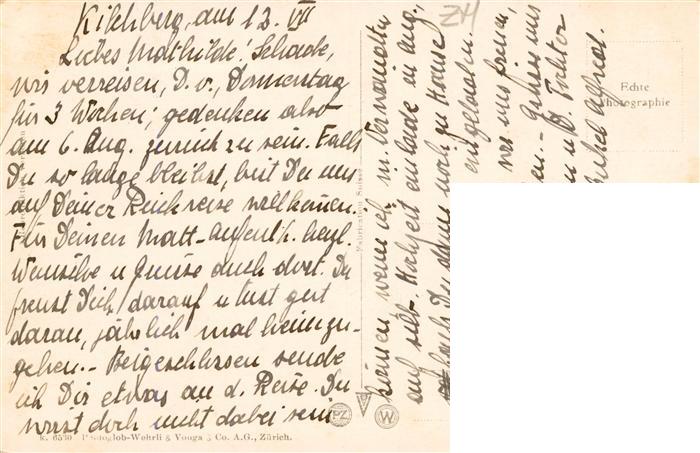 Kilchberg, am 12. VII
Liebes Mathilde! Schade,
wir verreisen, D. v., Donnerstag
für 3 Wochen; gedenken also
am 6. Aug. zurück zu sein. Falls
Du so lange bleibst, bist Du uns
auf Deiner Rückreise willkommen.
Für Deinen Matt-Aufenth. herzl.
Wünsche u Grüsse auch dort. Du
freust Dich darauf u tust gut
daran, jährlich mal heimzu-
gehen.- Beigeschlossen sende
ich Dir etwas an d. Reise. Du
wirst doch nicht dabei sein
können, wenn ich in. Verwandten
auf silb. Hochzeit einlade im Aug.
auch Du schon noch zu Hause
eingeladen.
wes uns freuen,
en.- Grüsse uns
u D. Tochter
Alfred.
ZH
Echte
Photographie
Fabrication Suisse
PZ
W
K. 6530 Photoglob-Wehrli & Vouga & Co. A.G., Zürich.